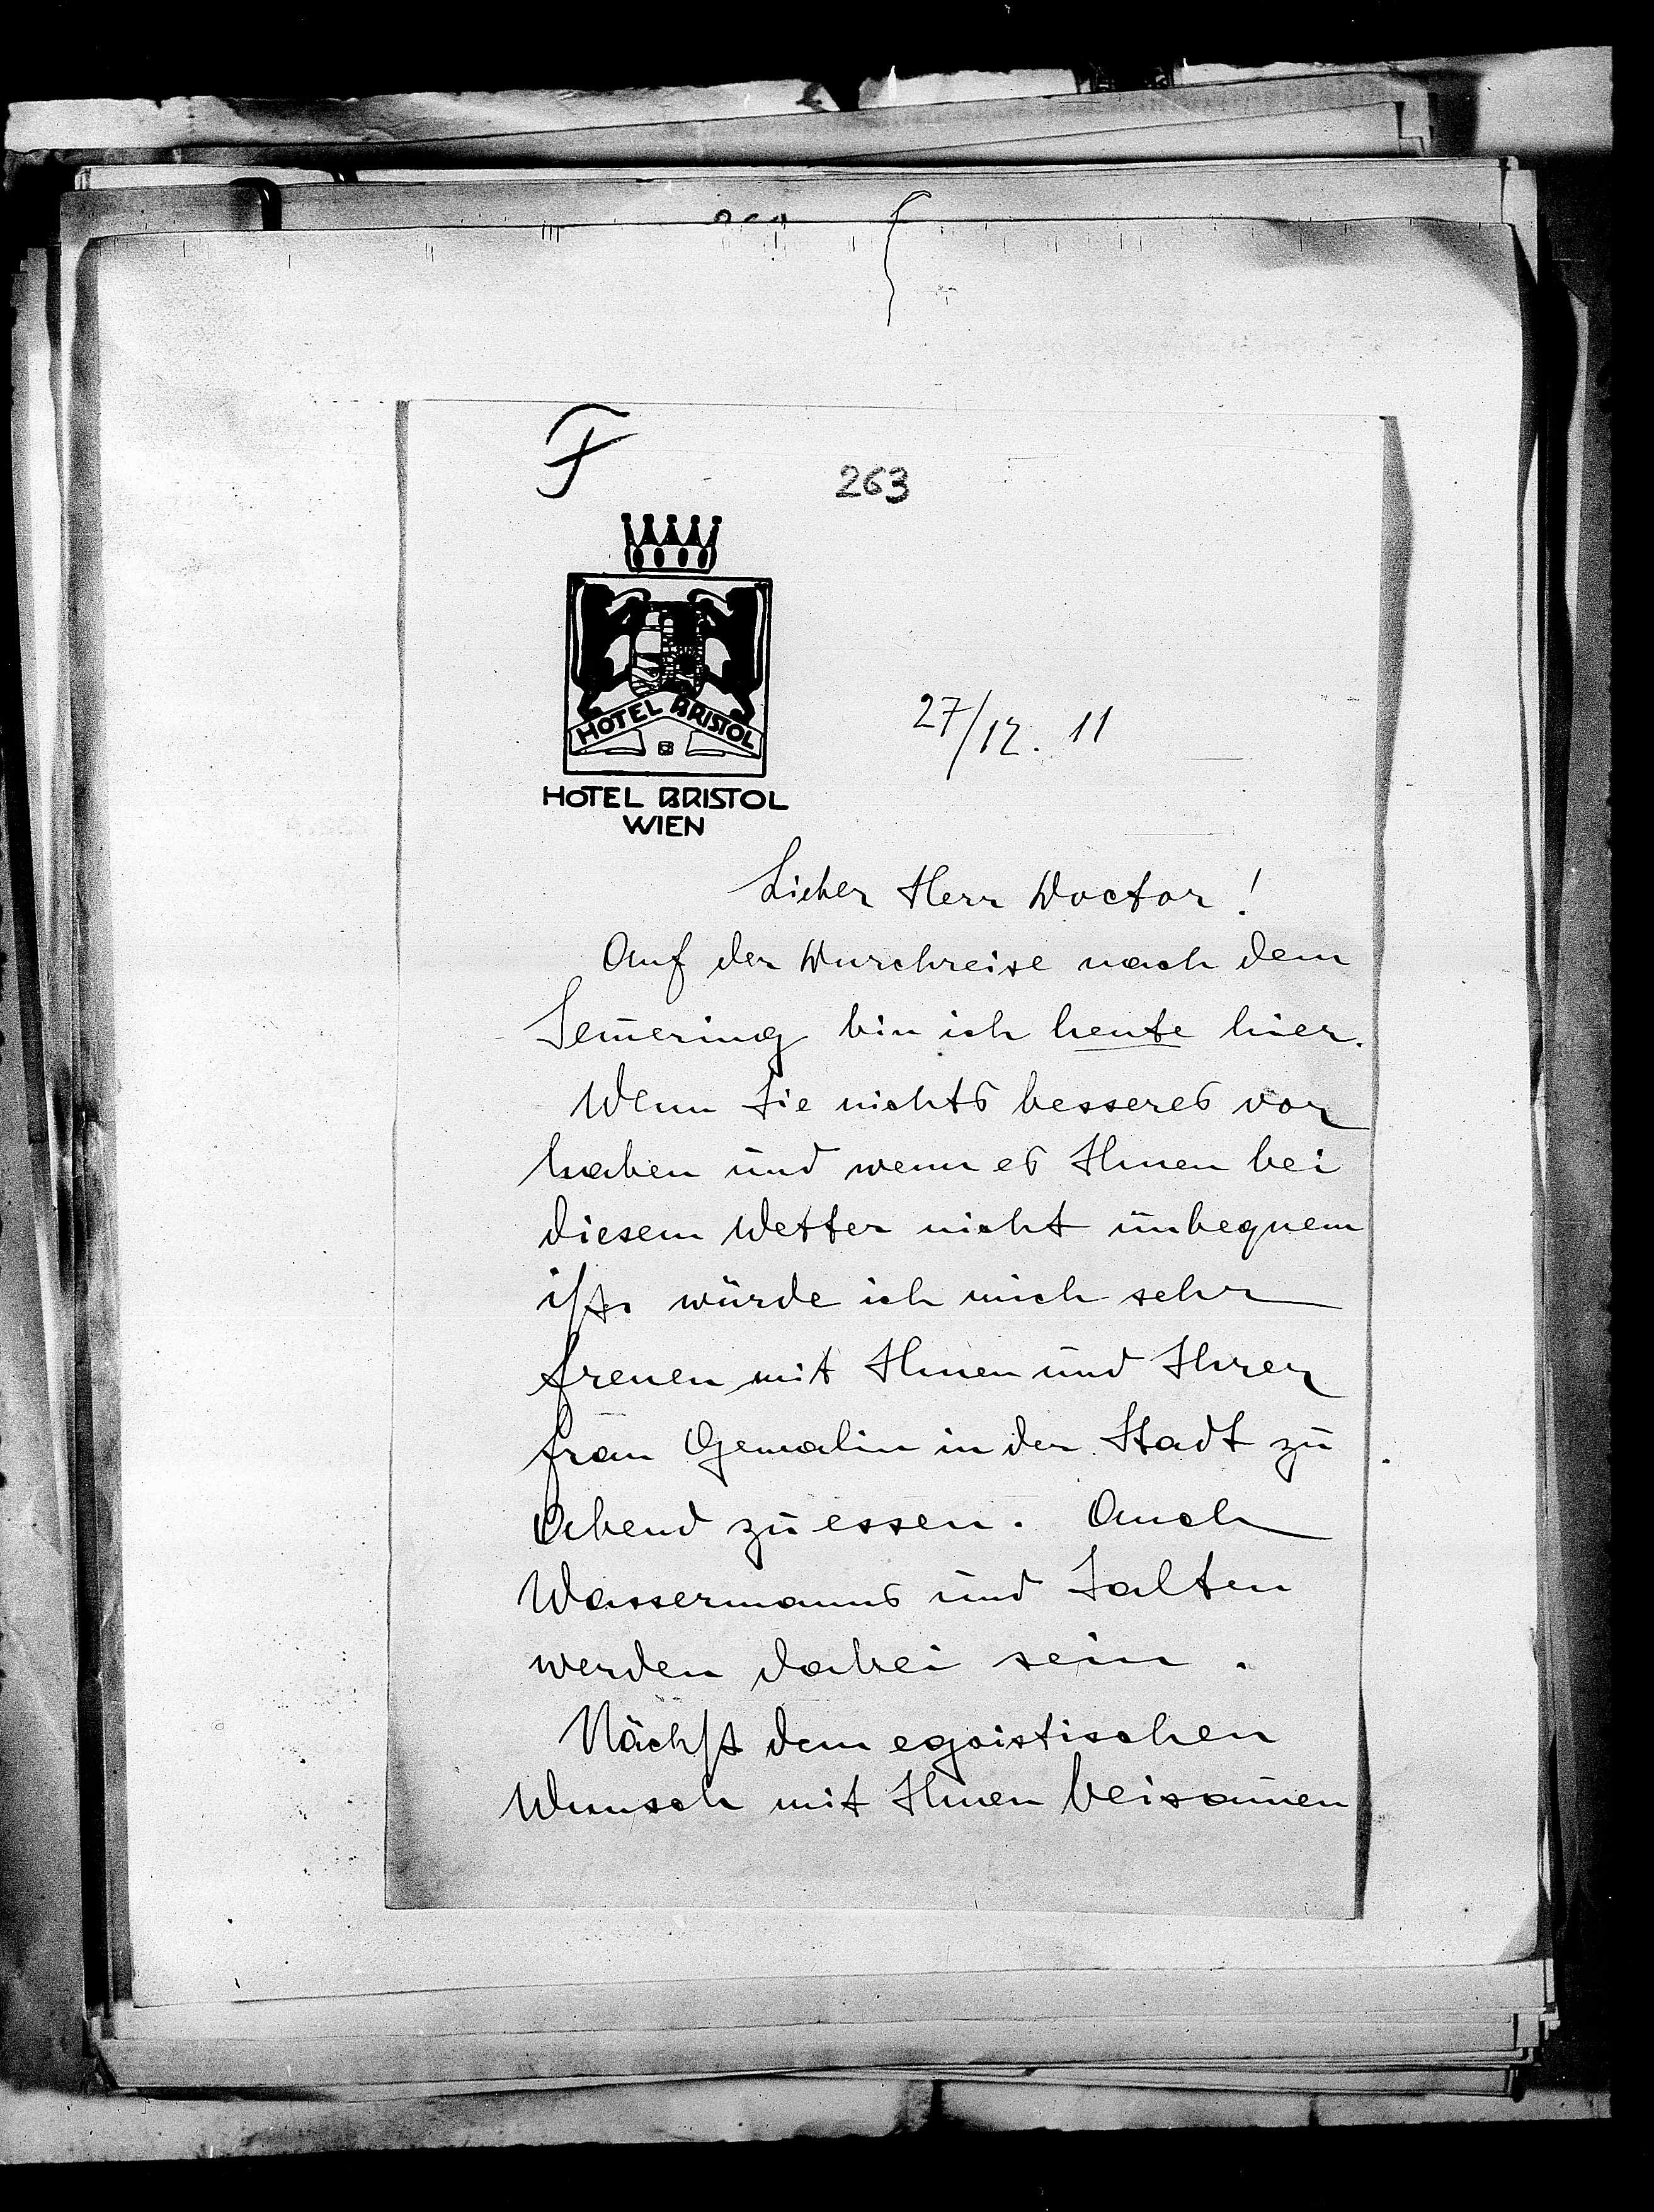 F
263
HOTEL BRISTOL
HOTEL BRISTOL
WIEN
27/12. 11
Lieber Herr Doctor!
Auf der Durchreise nach dem
Sem̄ering bin ich heute hier.
Wenn Sie nichts besseres vor
haben und wenn es Ihnen bei
diesem Wetter nicht unbequem
ist, würde ich mich sehr
freuen mit Ihnen und Ihrer
Frau Gemalin in der Stadt zu
Abend zu essen. Auch
Wassermanns und Salten
werden dabei sein.
Nächst dem egoistischen
Wunsch mit Ihnen beisam̄en